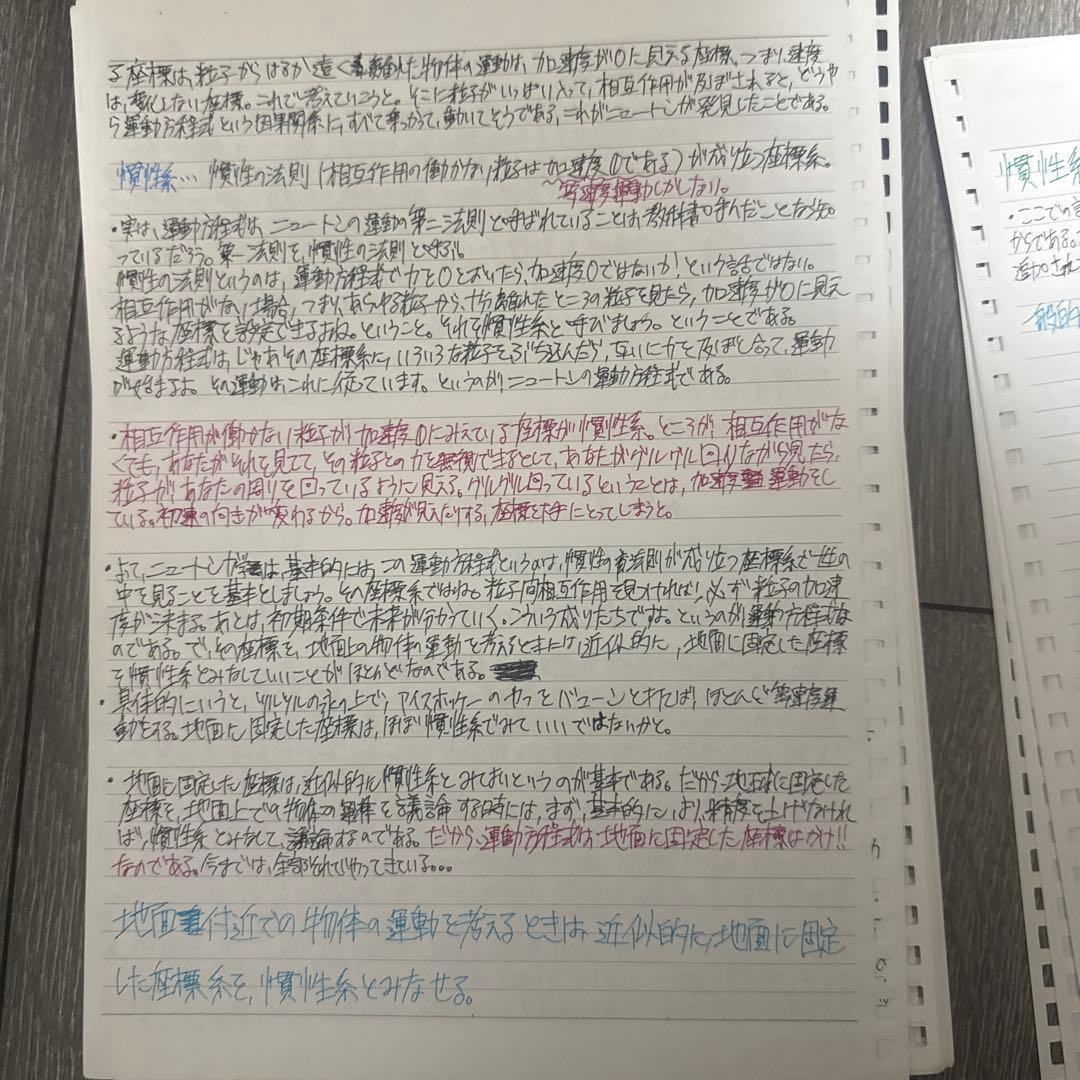 る座標は、粒子からはるか遠く離れた物体の運動は、加速度が0に見える座標、つまり、速度
は、変化しない座標。これで考えていこうと。そこに粒子がいっぱい入って、相互作用が及ぼされると、どうや
ら運動方程式という因果関係に、すべて乗っかって、動いてそうである、これがニュートンが発見したことである。
慣性系… 慣性の法則(相互作用の働かない粒子は加速度0である)が成り立つ座標系。
等速度運動しかしない。
・実は、運動方程式は、ニュートンの運動の第二法則と呼ばれていることは、教科書呼んだことなら知
っているだろう。第一法則を、慣性の法則と呼ぶ。
慣性の法則というのは、運動方程式で力を0とおいたら、加速度0ではないか!という話ではない。
相互作用がない場合、つまり、あらゆる粒子から、十分離れたところの粒子を見たら、加速度が0に見え
るような座標を設定できるよね。ということ。それを慣性系と呼びましょう。ということである。
運動方程式は、じゃあその座標系に、いろいろな粒子をぶち込んだら、互いに力を及ぼし合って、運動
が始まるよ。その運動は、これに従っています。というのが、ニュートンの運動方程式である。
・相互作用が働かない粒子が加速度0にみえている座標が慣性系。ところが、相互作用がな
くても、あなたがそれを見てて、その粒子との力を無視できるとして、あなたがグルグル回りながら見たら、
粒子が、あなたの周りを回っているように見える。グルグル回っているということは、加速度運動をし
ている。初速の向きが変わるから。加速度が見えたりする、座標を下手にとってしまうと。
・よて、ニュートンがは、基本的には、この運動方程式というのは、慣性の法則が成り立つ座標系で世の
中を見ることを基本としましょう。その座標系ではね。粒子間相互作用を見つければ!必ず粒子の加速
度が決まる。あとは、初期条件で未来が分かっていく。こういう成りたちですよ。というのが運動方程式な
のである。で、その座標を、地面上の物体の運動を考えるときには近似的に、地面に固定した座標
を慣性系とみなしていいことがほとんどなのである。
・具体的にいうと、ツルツルの氷の上で、アイスホッケーのやつをバューンとすれば、ほとんど等速度運
動をする。地面に固定した座標は、ほぼ慣性系でみていいいではないかと。
・地面に固定した座標は、近似的に慣性系とみてよいというのが基本である。だから、地球に固定した
座標を、地面上での物体の運動を議論する時には、まず、基本的に、より、精度を上げなけれ
ば、慣性系とみなして、議論するのである。だから、運動方程式は、地面に固定した座標はかけ!!
なのである。今までは、全部それでやってきている。。。
地面付近での物体の運動を考えるときは、近似的に、地面に固定
した座標系を、慣性系とみなせる。
慣性系
・ここでの
からである。
追加され